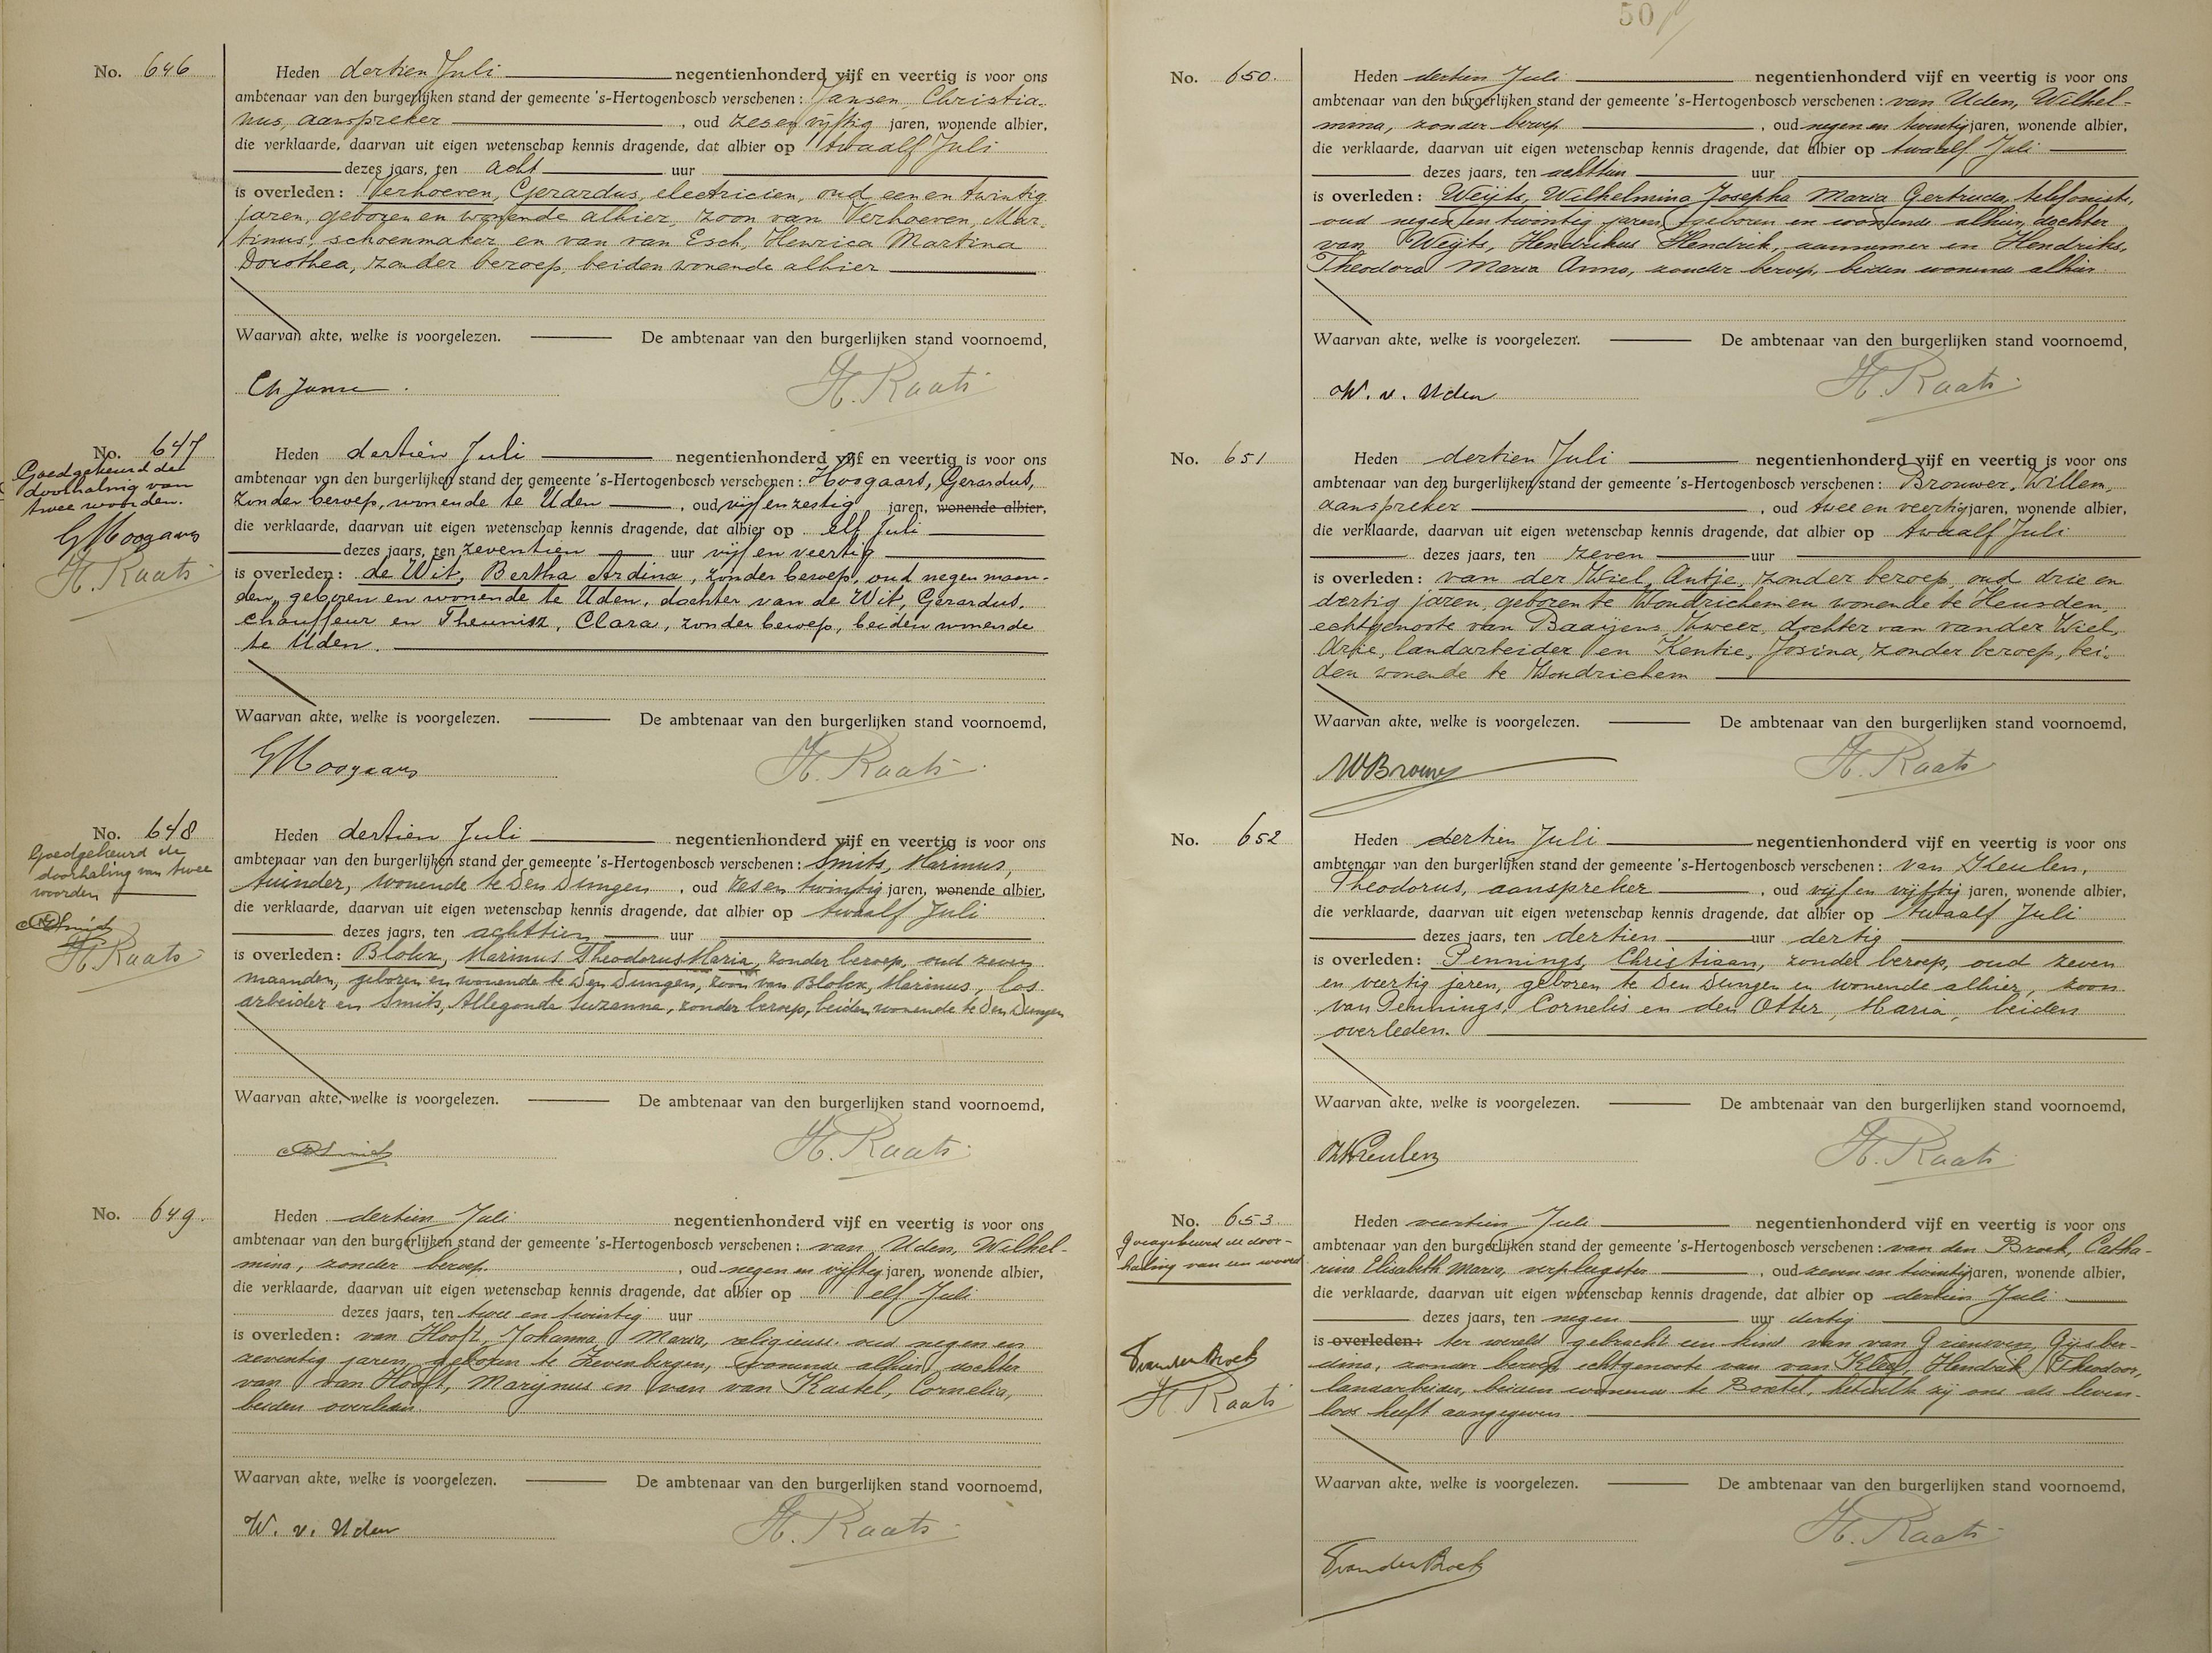 No. 646
Heden dertien Juli negentienhonderd vijf en veertig is voor ons
ambtenaar van den burgerlijken stand der gemeente 's-Hertogenbosch verschenen: Jansen, Christia-
nus, aanspreker, oud zes en vijftig jaren, wonende alhier,
die verklaarde, daarvan uit eigen wetenschap kennis dragende, dat alhier op twaalf Juli
dezes jaars, ten acht uur
is overleden: Verhoeven, Gerardus, electricien, oud een en twintig
jaren, geboren en wonende alhier, zoon van Verhoeven, Mar-
tinus, schoenmaker en van van Esch, Henrica Martina
Dorothea, zonder beroep, beiden wonende alhier
Waarvan akte, welke is voorgelezen. De ambtenaar van den burgerlijken stand voornoemd,
Ch Jansen H. Raats
No. 647
Goedgekeurd de
doorhaling van
twee woorden.
G Hoogaars
H. Raats
Heden dertien Juli negentienhonderd vijf en veertig is voor ons
ambtenaar van den burgerlijken stand der gemeente 's-Hertogenbosch verschenen: Hoogaars, Gerardus,
zonder beroep, wonende te Uden, oud vijf en zestig jaren, wonende alhier,
die verklaarde, daarvan uit eigen wetenschap kennis dragende, dat alhier op elf Juli
dezes jaars, ten zeventien uur vijf en veertig
is overleden: de Wit, Bertha Ardina, zonder beroep, oud negen maan-
den, geboren en wonende te Uden, dochter van de Wit, Gerardus,
chauffeur en Theunisz, Clara, zonder beroep, beiden wonende
te Uden.
Waarvan akte, welke is voorgelezen. De ambtenaar van den burgerlijken stand voornoemd,
G Hoogaars H. Raats
No. 648
Goedgekeurd de
doorhaling van twee
woorden
Smits
H. Raats
Heden dertien Juli negentienhonderd vijf en veertig is voor ons
ambtenaar van den burgerlijken stand der gemeente 's-Hertogenbosch verschenen: Smits, Marinus,
tuinder, wonende te Den Dungen, oud zes en twintig jaren, wonende alhier,
die verklaarde, daarvan uit eigen wetenschap kennis dragende, dat alhier op twaalf Juli
dezes jaars, ten achttien uur
is overleden: Blokx, Marinus Theodorus Maria, zonder beroep, oud zeven
maanden, geboren en wonende te Den Dungen, zoon van Blokx, Marinus, los
arbeider en Smits, Allegonda Suzanna, zonder beroep, beiden wonende te Den Dungen
Waarvan akte, welke is voorgelezen. De ambtenaar van den burgerlijken stand voornoemd,
Smits H. Raats
No. 649.
Heden dertien Juli negentienhonderd vijf en veertig is voor ons
ambtenaar van den burgerlijken stand der gemeente 's-Hertogenbosch verschenen: van Uden, Wilhel-
mina, zonder beroep, oud negen en vijftig jaren, wonende alhier,
die verklaarde, daarvan uit eigen wetenschap kennis dragende, dat alhier op elf Juli
dezes jaars, ten twee en twintig uur
is overleden: van Hooft, Johanna Maria, religieuse oud negen en
zeventig jaren, geboren te Zevenbergen, wonende alhier, dochter
van van Hooft, Marijnus en van van Kastel, Cornelia,
beiden overleden.
Waarvan akte, welke is voorgelezen. De ambtenaar van den burgerlijken stand voornoemd,
W. v. Uden H. Raats
50
No. 650.
Heden dertien Juli negentienhonderd vijf en veertig is voor ons
ambtenaar van den burgerlijken stand der gemeente 's-Hertogenbosch verschenen: van Uden, Wilhel-
mina, zonder beroep, oud negen en twintig jaren, wonende alhier,
die verklaarde, daarvan uit eigen wetenschap kennis dragende, dat alhier op twaalf Juli
dezes jaars, ten achttien uur
is overleden: Weijts, Wilhelmina Josepha Maria Gertruda, telefoniste,
oud negen en twintig jaren, geboren en wonende alhier, dochter
van Weijts, Hendrikus Hendrik, aannemer en Hendriks,
Theodora Maria Anna, zonder beroep, beiden wonende alhier
Waarvan akte, welke is voorgelezen. De ambtenaar van den burgerlijken stand voornoemd,
W. v. Uden H. Raats
No. 651
Heden dertien Juli negentienhonderd vijf en veertig is voor ons
ambtenaar van den burgerlijken stand der gemeente 's-Hertogenbosch verschenen: Brouwer, Willem,
aanspreker, oud twee en veertig jaren, wonende alhier,
die verklaarde, daarvan uit eigen wetenschap kennis dragende, dat alhier op twaalf Juli
dezes jaars, ten zeven uur
is overleden: van der Wiel, Antje, zonder beroep, oud drie en
dertig jaren, geboren te Woudrichem en wonende te Heusden,
echtgenoote van Baaijens, dochter van van der Wiel,
Arie, landarbeider en Kentie, Josina, zonder beroep, bei-
den wonende te Woudrichem
Waarvan akte, welke is voorgelezen. De ambtenaar van den burgerlijken stand voornoemd,
W Brouwer H. Raats
No. 652
Heden dertien Juli negentienhonderd vijf en veertig is voor ons
ambtenaar van den burgerlijken stand der gemeente 's-Hertogenbosch verschenen: van Keulen,
Theodorus, aanspreker, oud vijf en vijftig jaren, wonende alhier,
die verklaarde, daarvan uit eigen wetenschap kennis dragende, dat alhier op twaalf Juli
dezes jaars, ten dertien uur dertig
is overleden: Pennings, Christiaan, zonder beroep, oud zeven
en veertig jaren, geboren te Den Dungen en wonende alhier, zoon
van Pennings, Cornelis en den Otter, Maria, beiden
overleden.
Waarvan akte, welke is voorgelezen. De ambtenaar van den burgerlijken stand voornoemd,
Keulen H. Raats
No. 653
Goedgekeurd de door-
haling van een woord
T van den Broek
H. Raats
Heden veertien Juli negentienhonderd vijf en veertig is voor ons
ambtenaar van den burgerlijken stand der gemeente 's-Hertogenbosch verschenen: van den Broek, Catha-
rina Elisabeth Maria, verpleegster, oud zeven en twintig jaren, wonende alhier,
die verklaarde, daarvan uit eigen wetenschap kennis dragende, dat alhier op dertien Juli
dezes jaars, ten negen uur dertig
is overleden: ter wereld gebracht een kind van van Griensven, Gijsber-
dina, zonder beroep, echtgenoote van van Kleef, Hendrik Theodoor,
landarbeider, beiden wonende te Boxtel, hetwelk zij ons als leven-
loos heeft aangegeven.
Waarvan akte, welke is voorgelezen. De ambtenaar van den burgerlijken stand voornoemd,
T van den Broek H. Raats